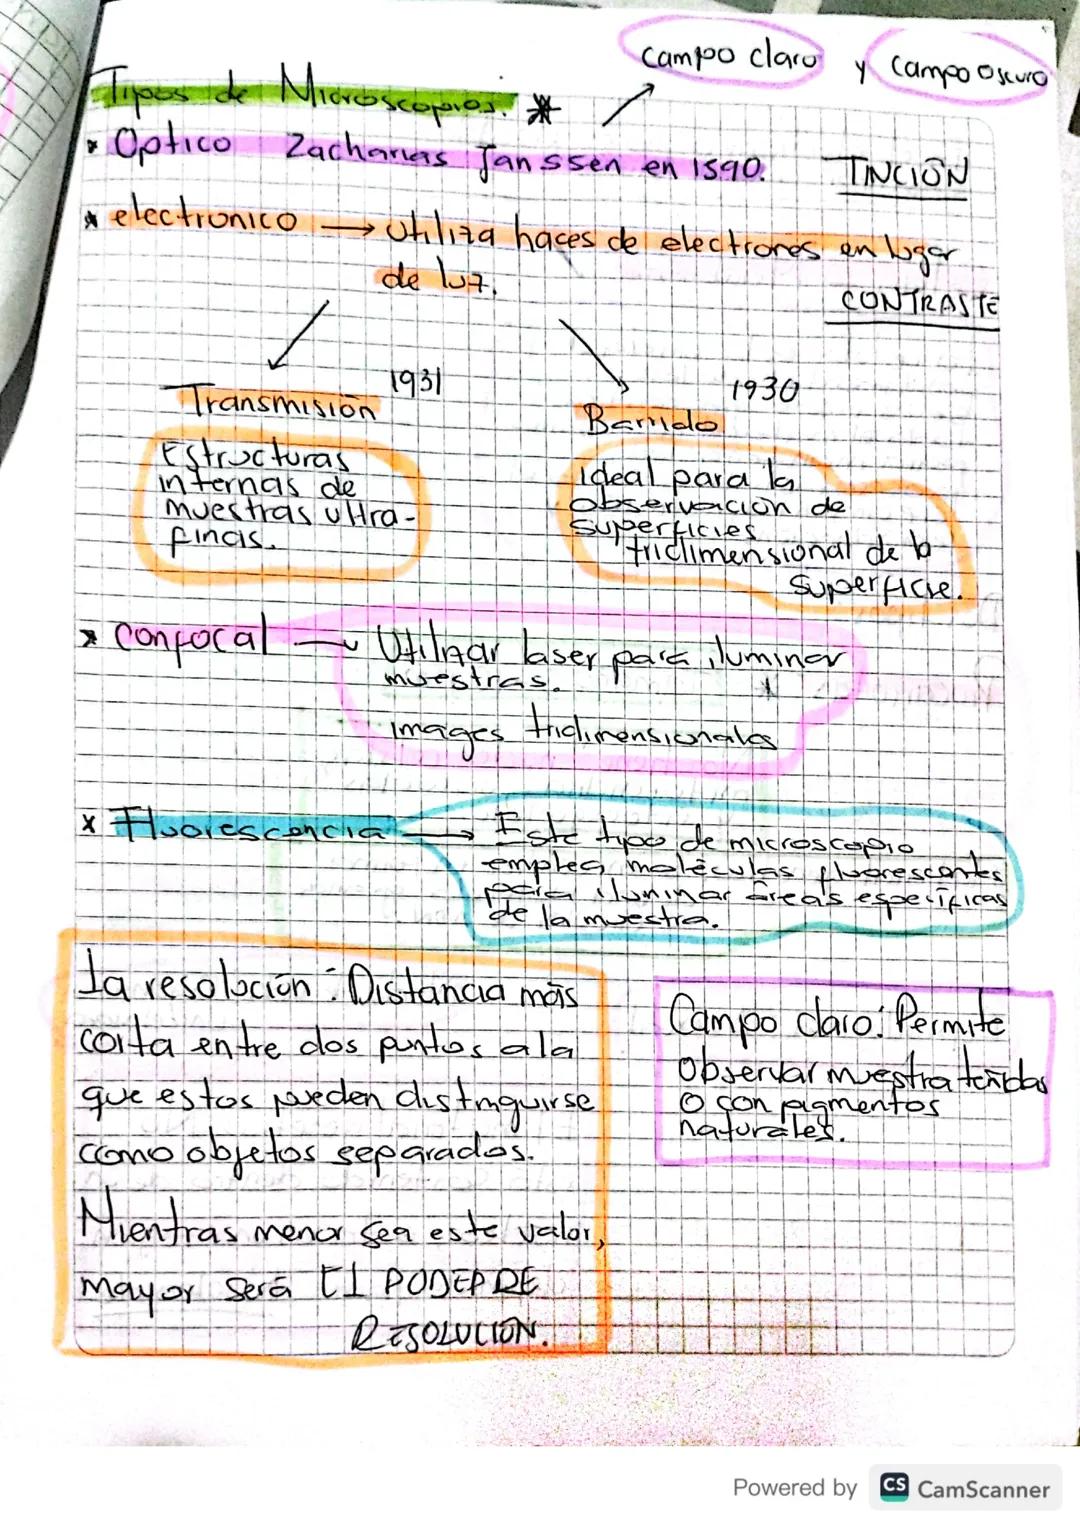 campo claro y campo oscuro
Tipos de Microscopios. *
* Optico Zacharias Janssen en 1590.
TINCIÓN
* electronico → Utiliza haces de electrones en lugar
de luz.
CONTRASTE
1931
Transmisión
Estructuras
internas de
muestras ultra-
finas.
1930
Barrido
ideal para la
observación de
superficies
tridimensional de la
superficie.
* Confocal → Utilizar laser para iluminar
muestras.
images tridimensionales
x Fluorescencia → Este tipo de microscopio
emplea moléculas fluorescentes
para iluminar áreas específicas
de la muestra.
La resolución: Distancia más
corta entre dos puntos a la
que estos pueden distinguirse
como objetos separados.
Mientras menor sea este valor,
mayor será El PODER DE
RESOLUCIÓN.
Campo claro: Permite
Observar muestra teñidas
O con pigmentos
naturales.
Powered by CS CamScanner